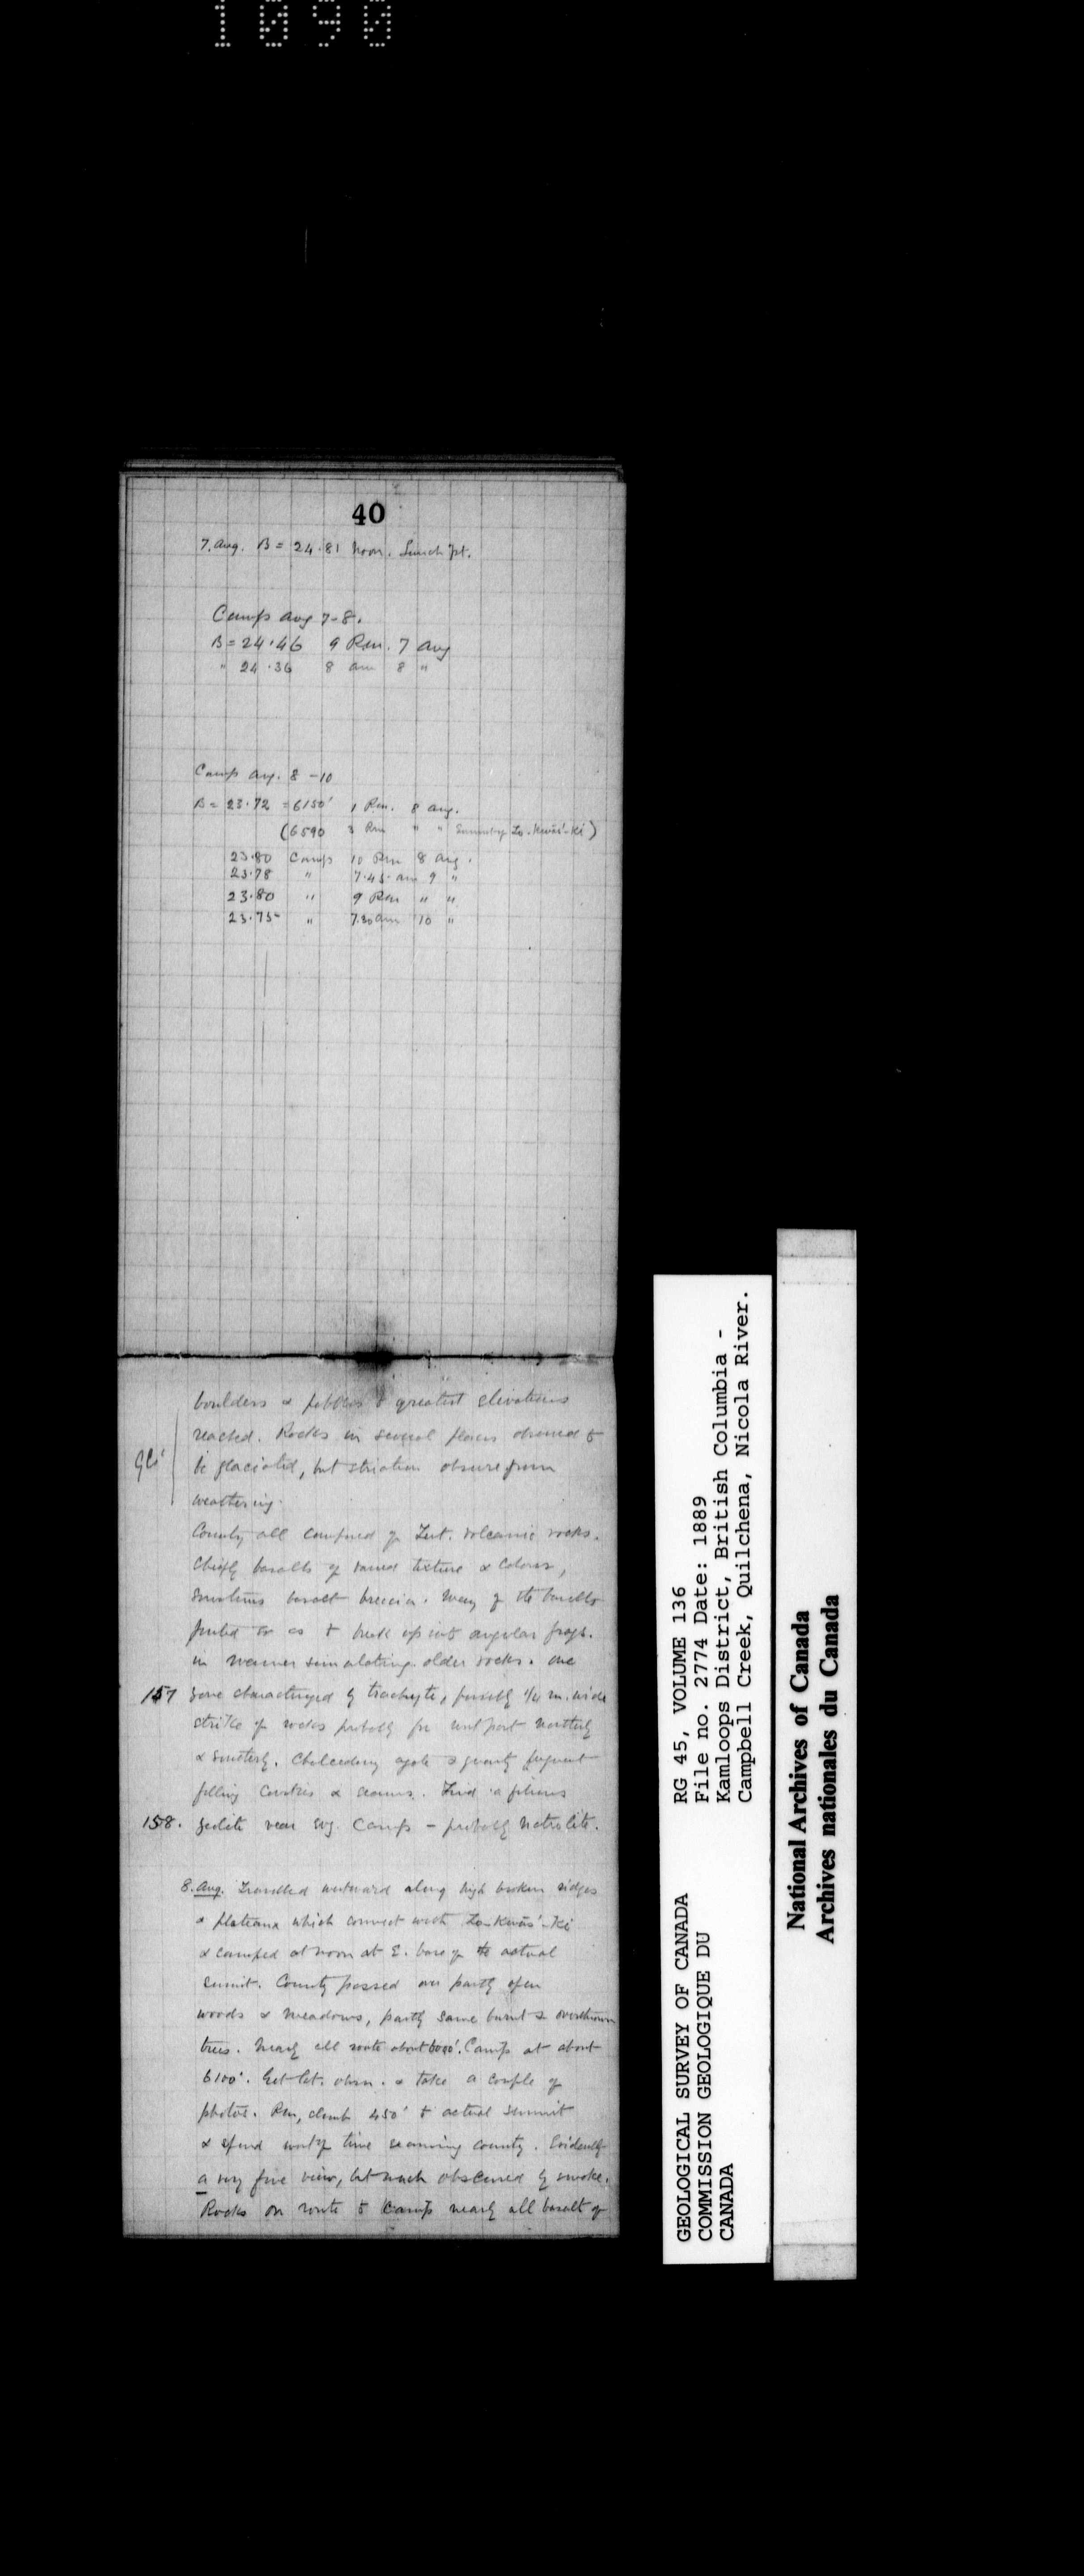 1090
40
7. Aug. B = 24.81 Noon. Lunch pt.
Camp Aug 7-8.
B = 24.46 9 Pm. 7 Aug
" 24.36 8 am 8 "
Camp Aug. 8-10
B = 23.72 = 6150' 1 Pm. 8 Aug.
(6590 3 Pm " " Summit of Za-kwās'-ki)
23.80 Camp 10 Pm 8 Aug.
23.78 " 7.45 am 9 "
23.80 " 9 Pm " "
23.75 " 7.30 am 10 "
boulders & pebbles to greatest elevations
reached. Rocks in several places observed to
be glaciated, but striation obscure from
weathering.
Country all composed of Tert. volcanic rocks.
Chiefly basalts of varied texture & colours,
sometimes basalt breccia. Many of the basalts
jointed so as to break up into angular frags.
in manner simulating older rocks. One
157 zone characterized by trachyte, possibly 1/4 m. wide
strike of rocks probably for most part northerly
& southerly. Chalcedony agate & quartz frequent
filling cavities & seams. Find a fibrous
158. zeolite near Evg. Camp - probably natrolite.
8. Aug. Travelled westward along high broken ridges
& plateaux which connect with Za-kwās'-ki
& camped at noon at E. base of the actual
summit. Country passed over partly open
woods & meadows, partly same burnt & overthrown
trees. Nearly all route about 6000'. Camp at about
6100'. Get lat. obsn. & take a couple of
photos. Pm, climb 450' to actual summit
& spend most of time scanning country. Evidently
a very fine view, but much obscured by smoke.
Rocks on route to camp nearly all basalt of
RG 45, VOLUME 136
File no. 2774 Date: 1889
Kamloops District, British Columbia -
Campbell Creek, Quilchena, Nicola River.
GEOLOGICAL SURVEY OF CANADA
COMMISSION GEOLOGIQUE DU
CANADA
National Archives of Canada
Archives nationales du Canada